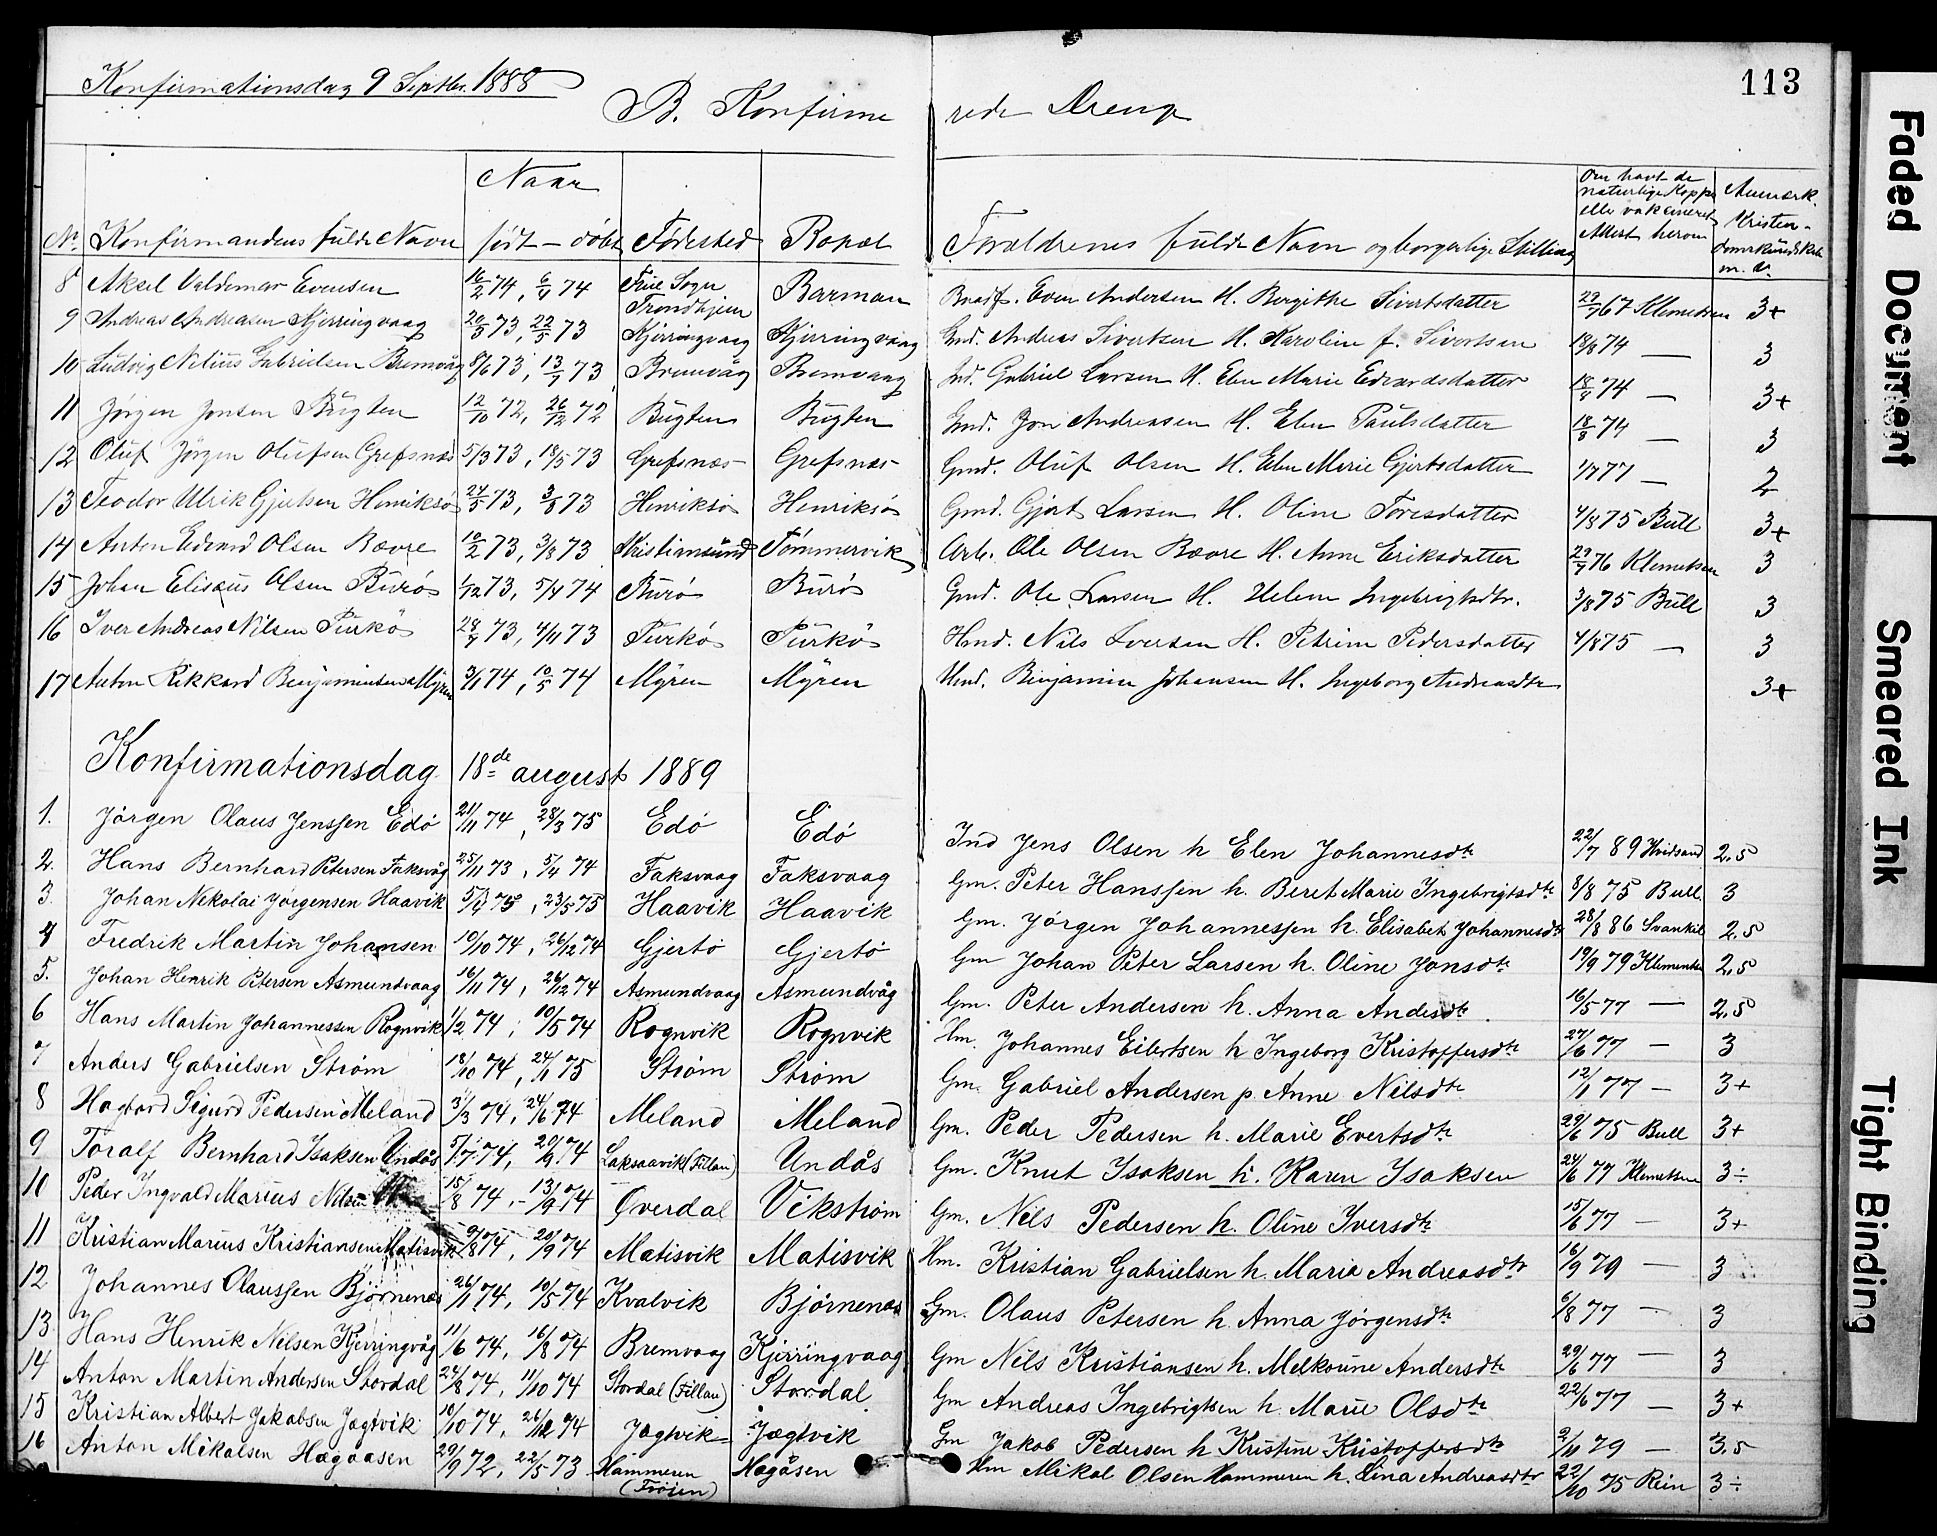 113
Konfirmationsdag 9 Septbr. 1888
B. Konfirmerede Drenge
Naar
No Konfirmandens fulde Navn født – døbt Fødested Bopæl Forældrenes fulde Navn og borgerlige Stilling Om havt de naturlige Kopper eller vakcineret Attest herom Anmærk. Kristendomskundskab m. v.
8 Aksel Valdemar Evensen 16/2 74, 6/4 74 Frue Sogn Trondhjem Barman Even Andersen H. Bergitthe Sivertsdatter 29/7 67 Klemetsen 3+
9 Andreas Andreasen Kjerringvaag 20/3 73, 22/5 73 Kjerringvaag Kjerringvaag Gmd. Andreas Sivertsen H. Karoline f. Sivertsen 18/8 74 — 3
10 Ludvig Nelius Gabrielsen Bremvåg 8/6 73, 13/7 73 Bremvåg Bremvaag Ind. Gabriel Larsen H. Elen Marie Edvardsdatter 18/8 74 — 3+
11 Jørgen Jonsen Bugten 12/10 72, 26/12 72 Bugten Bugten Gmd. Jon Andreasen H. Elen Paulsdatter 18/8 74 — 3
12 Oluf Jørgen Olufsen Grefsnæs 5/3 73, 18/5 73 Grefsnæs Grefsnæs Gmd. Oluf Olsen H. Elen Marie Gjertsdatter 1/7 77 — 2
13 Teodor Ulrik Gjertsen Henriksø 24/5 73, 3/8 73 Henriksø Henriksø Gmd. Gjert Larsen H. Oline Toresdatter 4/8 75 Bull 3+
14 Anton Edvard Olsen Bævre 10/2 73, 3/8 73 Kristiansund Tømmervik Arb. Ole Olsen Bævre H. Anne Eriksdatter 29/7 76 Klemetsen 3
15 Johan Eliseus Olsen Burø 1/12 73, 5/4 74 Burø Burø Gmd. Ole Larsen H. Helene Ingebrigtsdtr. 3/8 75 Bull 3
16 Iver Andreas Nilsen Purkø 28/7 73, 4/11 73 Purkø Purkø Hmd. Nils Iversen H. Petrine Pedersdatter 4/8 75 — 3
17 Anton Rikkard Benjaminsen Myren 3/1 74, 10/5 74 Myren Myren Hmd. Binjamin Johansen H. Ingeborg Andreasdtr 3+
Konfirmationsdag 18de august 1889
1. Jørgen Olaus Jenssen Edø 21/11 74, 28/3 75 Edø Edø Ind Jens Olsen h Elen Johannesdtr 22/7 89 Hvidsand 2,5
2. Hans Bernhard Petersen Faksvåg 25/11 73, 5/4 74 Faksvaag Faksvaag Gm. Peter Hanssen h. Beret Marie Ingebrigtsdtr 3/8 75 Bull 3
3. Johan Nekolai Jørgensen Haavik 5/4 75, 23/5 75 Haavik Haavik Gm. Jørgen Johannessen h Elisabet Johannesdtr 28/8 86 2,5
4 Fredrik Martin Johansen 10/10 74, 26/12 74 Gjertø Gjertø Gm Johan Peter Larsen h. Oline Jonsdtr 19/9 79 Klementsen 2,5
5. Johan Henrik Petersen Asmundvaag 16/11 74, 26/12 74 Asmundvaag Asmundvåg Gm. Peter Andersen h. Anna Andersdtr 16/5 77 — 2,5
6 Hans Martin Johannessen Rognvik 1/2 74, 10/5 74 Rognvik Rognvik Hm. Johannes Eilertsen h Ingeborg Kristoffersdtr 27/6 77 — 3
7 Anders Gabrielsen Strøm 18/10 74, 24/1 75 Strøm Strøm Gm. Gabriel Andersen p. Anne Nilsdtr 12/1 77 — 3+
8 Hagbard Sigurd Pedersen Meland 31/3 74, 24/6 74 Meland Meland Gm. Peder Pedersen h. Marie Evertsdtr 29/6 75 Bull 3+
9 Toralf Bernhard Isaksen Undås 5/7 74, 20/9 74 Laksaavik (Fillan) Undås Gm. Knut Isaksen h. Karen Isaksen 24/6 77 Klemetsen 3÷
10 Peder Ingvald Marius Nilsen 15/8 74 – 13/9 74 Øverdal Vikstrøm Gm. Nils Pedersen h. Oline Iversdtr 15/6 77 — 3+
11 Kristian Marius Kristiansen Matisvik 9/8 74, 20/9 74 Matisvik Matisvik Hm. Kristian Gabrielsen h. Maria Andreasdtr 16/9 79 — 3
12 Johannes Olaussen Bjørnenes 26/1 74, 10/5 74 Kvalvik Bjørnenes Gm. Olaus Petersen h. Anna Jørgensdtr 6/8 77 — 3
13 Hans Henrik Nelsen Kjerringvåg 11/6 74, 16/8 74 Bremvaag Kjerringvaag Gm Nels Kristiansen h. Melkoline Andersdtr 29/6 77 — 3
14 Anton Martin Andersen Stordal 24/8 74, 11/10 74 Stordal (Fillan) Stordal Gm Andreas Ingebrigtsen h. Marie Olsdtr 22/6 77 — 3+
15 Kristian Albert Jakobsen Jægtvik 10/10 74, 26/12 74 Jægtvik Jægtvik Gm Jakob Pedersen h Kristine Kristoffersdtr 2/11 79 — 3,5
16 Anton Mikalsen Hagaasen 29/9 72, 22/5 73 Hammeren (Frøien) Hagåsen Hm Mikal Olsen Hammeren h. Lina Andreasdtr 22/10 75 Rein 3÷
Faded Document
Smeared Ink
Tight Binding